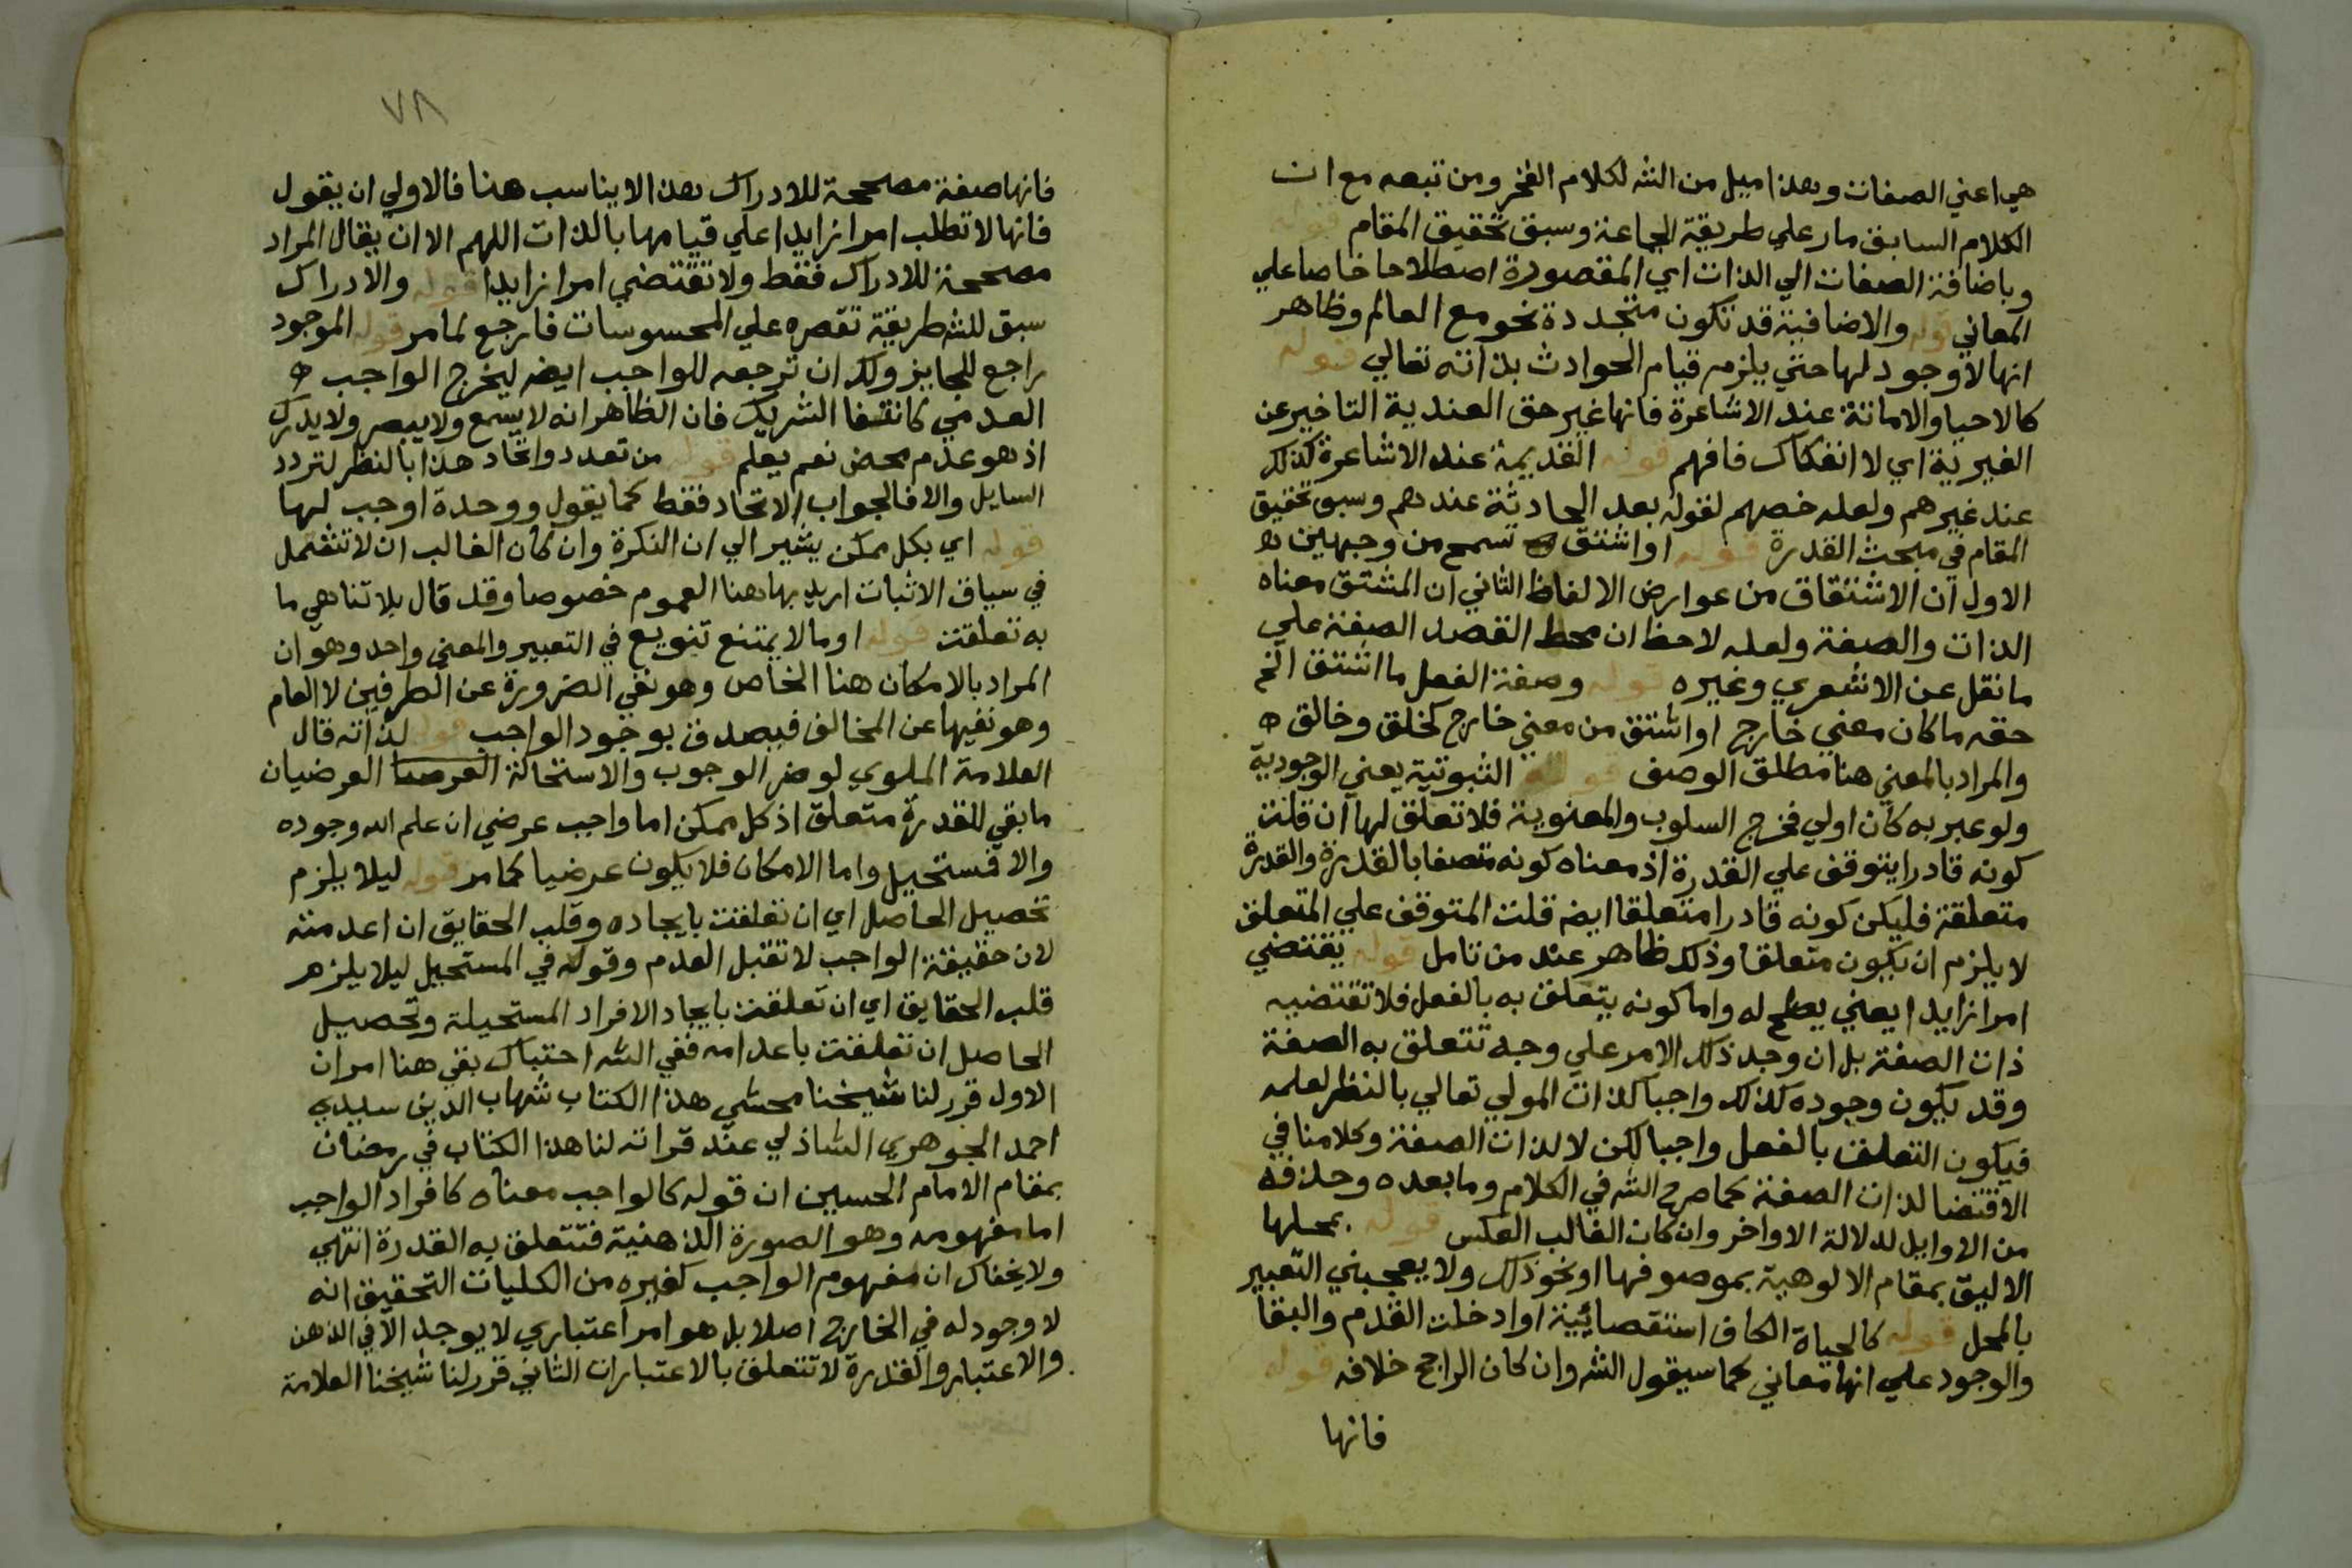 هي اعني الصفات وهذا ميل من الشه لكلام الفخر ومن تبعه مع ان
الكلام السابق مار علي طريقة الجماعة وسبق تحقيق المقام قوله
وباضافة الصفات الي الذات اي المقصودة اصطلاحا خاصا علي
المعاني قوله والاضافية قد تكون متجددة نحو مع العالم وظاهر
انها لا وجود لها حتي يلزم قيام الحوادث بذاته تعالي قوله
كالاحيا والاماتة عند الاشاعرة فانها غير حق العندية التاخير عن
الغيرية اي لا انفكاك فافهم قوله القديمة عند الاشاعرة كذلك
عند غيرهم ولعله خصهم لقوله بعد الحادثة عندهم وسبق تحقيق
المقام في مبحث القدرة قوله او اشتق تسمح من وجهين
الاول ان الاشتقاق من عوارض الالفاظ الثاني ان المشتق معناه
الذات والصفة ولعله لاحظ ان محط القصد الصفة علي
ما نقل عن الاشعري وغيره قوله وصفة الفعل ما اشتق الخ
حقه ما كان معني خارج او اشتق من معني خارج كخلق وخالق
والمراد بالمعني هنا مطلق الوصف قوله الثبوتية يعني الوجودية
ولو عبر به كان اولي فخرج السلوب والمعنوية فلا تعلق لها ان قلت
كونه قادرا يتوقف علي القدرة اذ معناه كونه متصفا بالقدرة والقدرة
متعلقة فليكن كونه قادرا متعلقا ايضه قلت المتوقف علي المتعلق
لا يلزم ان يكون متعلقا وذلك ظاهر عند من تامل قوله يقتضي
امرا زايدا يعني يصلح له واما كونه يتعلق به بالفعل فلا تقتضيه
ذات الصفة بل ان وجد ذلك الامر علي وجه تتعلق به الصفة
وقد يكون وجوده كذلك واجبا كذات المولي تعالي بالنظر لعلمه
فيكون التعلق بالفعل واجبا لكن لا لذات الصفة وكلامنا في
الاقتضا لذات الصفة كما صرح الشه في الكلام وما بعده وحذفه
من الاوايل لدلالة الاواخر وان كان الغالب العكس قوله بمحلها
الاليق بمقام الالوهية بموصوفها او نحو ذلك ولا يعجبني التعبير
بالمحل قوله كالحياة الكاف استقصائية او ادخلت القدم والبقا
والوجود علي انها معاني كما سيقول الشه وان كان الراجح خلافه قوله
فانها
٧٨
فانها صفة مصححة للادراك هذا لا يناسب هنا فالاولي ان يقول
فانها لا تطلب امرا زايدا علي قيامها بالذات اللهم الا ان يقال المراد
مصححة للادراك فقط ولا تقتضي امرا زايدا قوله والادراك
سبق للشه طريقة تقصره علي المحسوسات فارجع لما مر قوله الموجود
راجع للجايز ولك ان ترجعه للواجب ايضه ليخرج الواجب
العدمي كانتفا الشريك فان الظاهر انه لا يسمع ولا يبصر ولا يدرك
اذ هو عدم محض نعم يعلم قوله من تعدد واتحاد هذا بالنظر لتردد
السايل والا فالجواب الاتحاد فقط كما يقول ووحدة اوجب لها
قوله اي بكل ممكن يشير الي ان النكرة وان كان الغالب ان لا تشمل
في سياق الاثبات اريد بها هنا العموم خصوصا وقد قال بلا تناهي ما
به تعلقت قوله او ما لا يمتنع تنويع في التعبير والمعني واحد وهو ان
المراد بالامكان هنا الخاص وهو نفي الضرورة عن الطرفين لا العام
وهو نفيها عن المخالف فيصدق بوجود الواجب قوله لذاته قال
العلامة الملوي لو ضر الوجوب والاستحالة العرضيا العرضيان
ما بقي للقدرة متعلق اذ كل ممكن اما واجب عرضي ان علم الله وجوده
والا فمستحيل واما الامكان فلا يكون عرضيا كما مر قوله ليلا يلزم
تحصيل الحاصل اي ان تعلقت بايجاده وقلب الحقايق ان اعدمته
لان حقيقة الواجب لا تقبل العدم وقوله في المستحيل ليلا يلزم
قلب الحقايق اي ان تعلقت بايجاد الافراد المستحيلة وتحصيل
الحاصل ان تعلقت باعدامه ففي الشه احتباك بقي هنا امران
الاول قرر لنا شيخنا محشي هذا الكتاب شهاب الدين سيدي
احمد الجوهري الشاذلي عند قراته لنا هذا الكتاب في رمضان
بمقام الامام الحسين ان قوله كالواجب معناه كافراد الواجب
اما مفهومه وهو الصورة الذهنية فتتعلق به القدرة انتهي
ولا يخفاك ان مفهوم الواجب كغيره من الكليات التحقيق انه
لا وجود له في الخارج اصلا بل هو امر اعتباري لا يوجد الا في الذهن
والاعتبار والقدرة لا تتعلق بالاعتبارات الثاني قرر لنا شيخنا العلامة